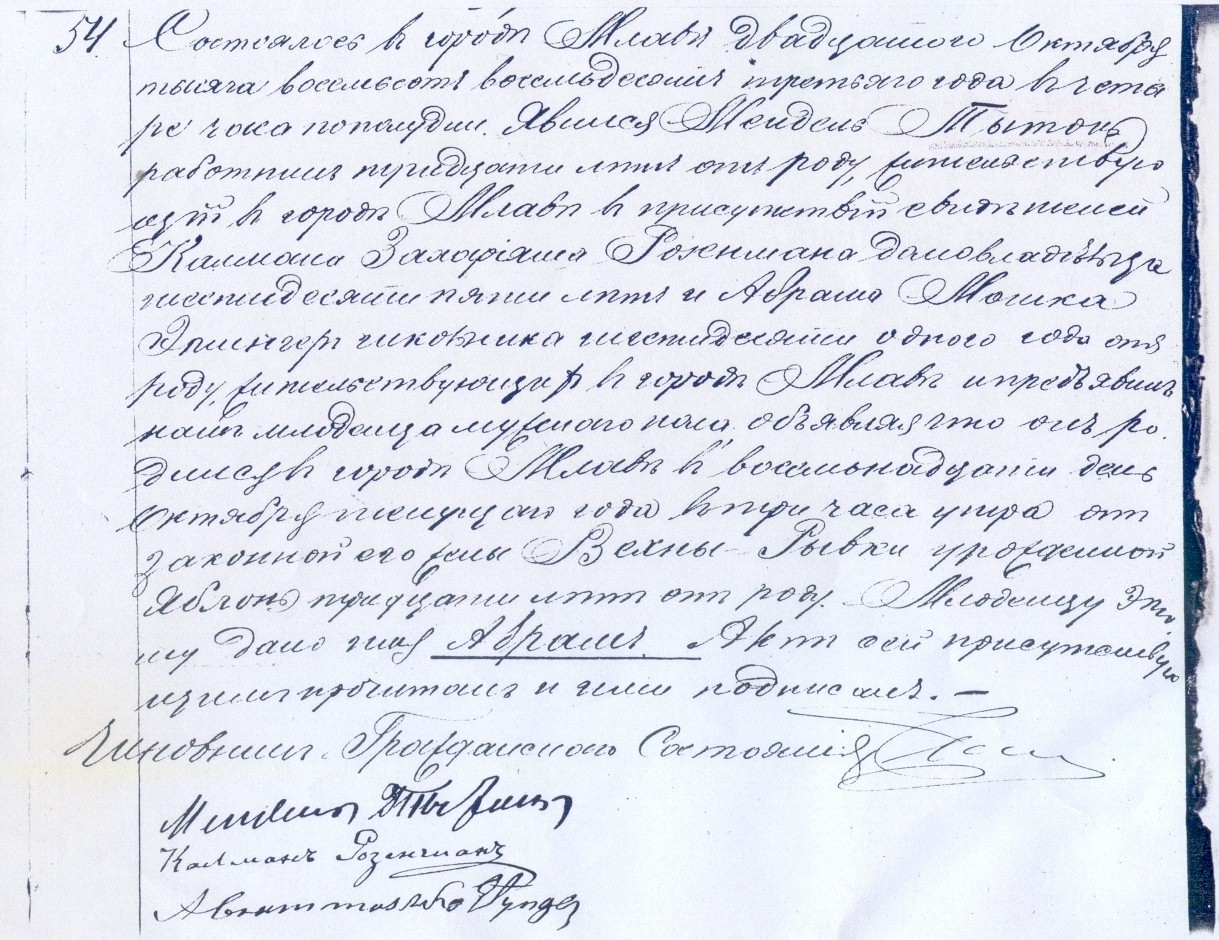 54. Состоялось въ городѣ Млавѣ двадцатого Октября
тысяча восемьсотъ восемьдесятъ третьяго года въ четы
ре часа пополудни. Явился Мендель Тытонь
работникъ тридцати лѣтъ отъ роду, жительствую
щій въ городѣ Млавѣ въ присутствіи свидѣтелей
Калмана домовладѣльца
шестидесяти пяти лѣтъ и Абрама Мошка
шестидесяти одного года отъ
роду, жительствующихъ въ городѣ Млавѣ и предъявилъ
намъ младенца мужскаго пола объявляя что онъ ро
дился въ городѣ Млавѣ въ восемьнадцати день
Октября текущаго года въ три часа утра отъ
законной его жены Рывки урожденной
Яблонь тридцати лѣтъ отъ роду. Младенцу это
му дано имя Абрамъ. Актъ сей присутствую
щимъ прочитанъ и ими подписанъ. —
Чиновникъ Гражданскаго Состоянія
Калманъ